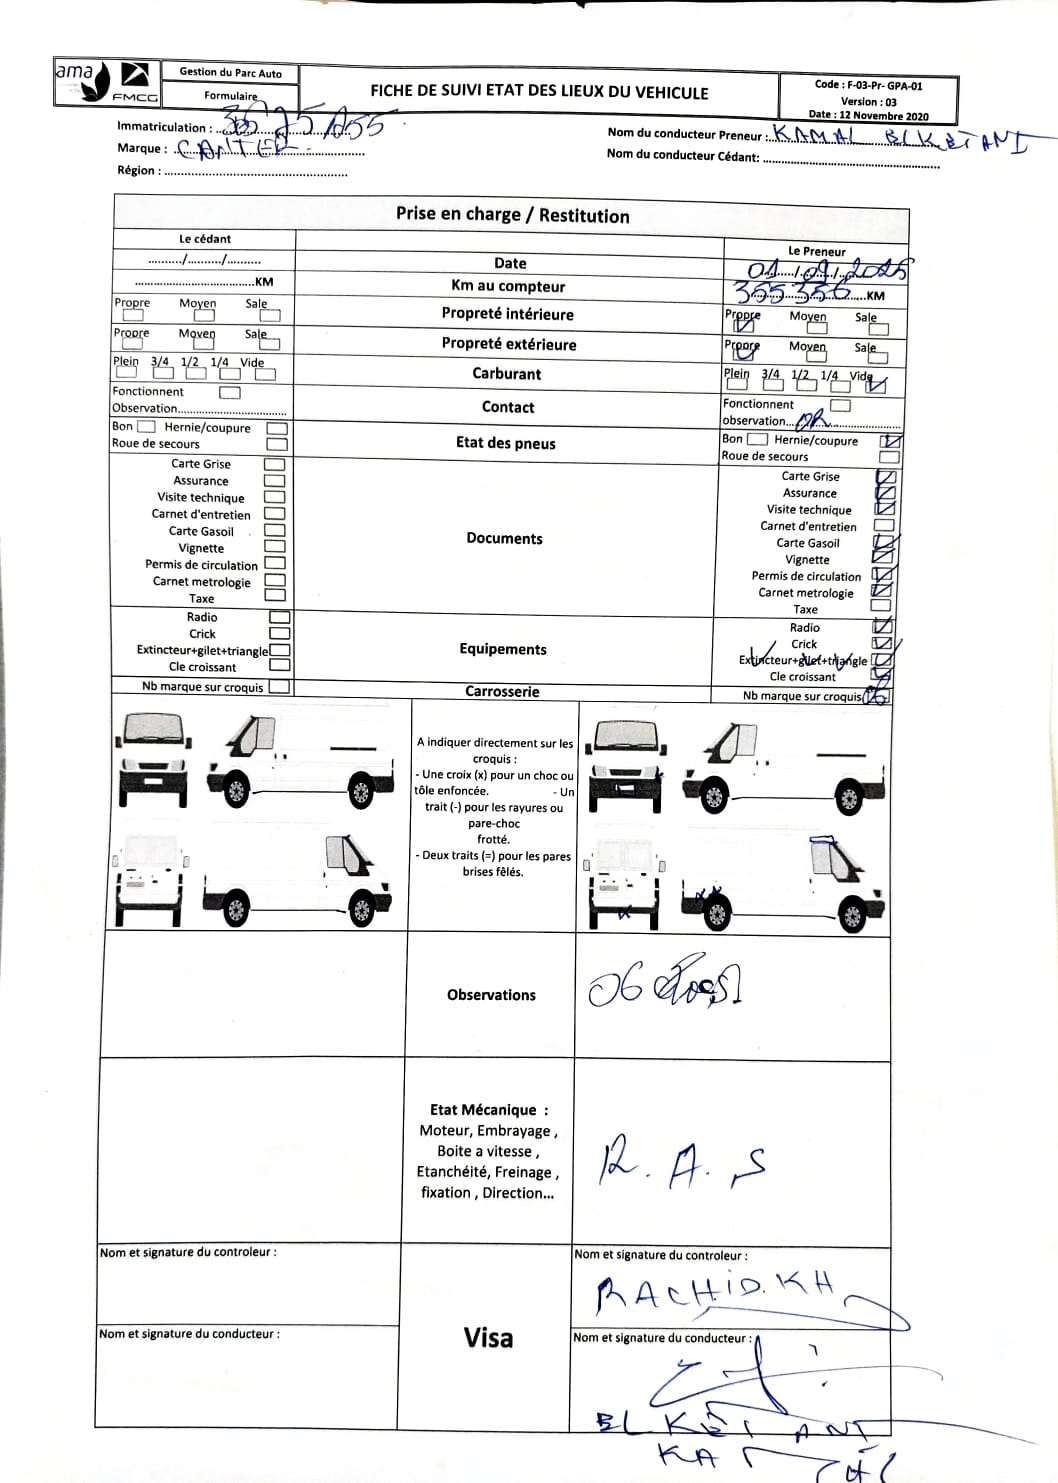 ama
FMCG
Gestion du Parc Auto
Formulaire
FICHE DE SUIVI ETAT DES LIEUX DU VEHICULE
Code : F-03-Pr- GPA-01
Version : 03
Date : 12 Novembre 2020
Immatriculation :
Marque : CANTER
Région :
Nom du conducteur Preneur : KAMAL BLKEIANI
Nom du conducteur Cédant:
Prise en charge / Restitution
Le cédant
Le Preneur
........../........../..........
Date
01/09/2025
KM
Km au compteur
355356 KM
Propre Moyen Sale
Propreté intérieure
Propre Moyen Sale
Propre Moyen Sale
Propreté extérieure
Propre Moyen Sale
Plein 3/4 1/2 1/4 Vide
Carburant
Plein 3/4 1/2 1/4 Vide
Fonctionnent
Observation
Contact
Fonctionnent
observation
Bon Hernie/coupure
Roue de secours
Etat des pneus
Bon Hernie/coupure
Roue de secours
Carte Grise
Assurance
Visite technique
Carnet d'entretien
Carte Gasoil
Vignette
Permis de circulation
Carnet metrologie
Taxe
Documents
Carte Grise
Assurance
Visite technique
Carnet d'entretien
Carte Gasoil
Vignette
Permis de circulation
Carnet metrologie
Taxe
Radio
Crick
Extincteur+gilet+triangle
Cle croissant
Equipements
Radio
Crick
Extincteur+gilet+triangle
Cle croissant
Nb marque sur croquis
Carrosserie
Nb marque sur croquis 06
A indiquer directement sur les
croquis :
- Une croix (x) pour un choc ou
tôle enfoncée. - Un
trait (-) pour les rayures ou
pare-choc
frotté.
- Deux traits (=) pour les pares
brises fêlés.
Observations
06
Etat Mécanique :
Moteur, Embrayage ,
Boite a vitesse ,
Etanchéité, Freinage ,
fixation , Direction...
R.A.S
Nom et signature du controleur :
Nom et signature du conducteur :
Visa
Nom et signature du controleur :
RACHID.KH
Nom et signature du conducteur :